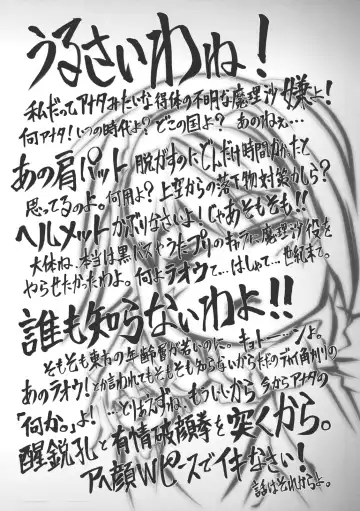 うるさいわね!
私だってアナタみたいな得体の不明な魔理沙嫌よ!
何アナタ!いつの時代よ?どこの国よ? あのねぇ…
あの肩パット脱がすのにどんだけ時間かかたと
思ってるのよ。何用よ?上空からの落下物対策かしら?
ヘルメットかぶりなさいよ!じゃあそもそも!!
大体ね、本当は黒バスやうたプリのキャラに魔理沙役を
やらせたかったわよ。何よラオウて…はしゃして…世紀末て。
誰も知らないわよ!!
そもそも東方の年齢層が若いのに。キョトーーンよ。
あのラオウ!とか言われてもそもそも知らないからただのデカイ角刈りの
「何か。」よ!…とりあえずね、もういいから今からアナタの
醒鋭孔と有情破顔拳を突くから。
アヘ顔Wピースでイキなさい!
話はそれからよ。